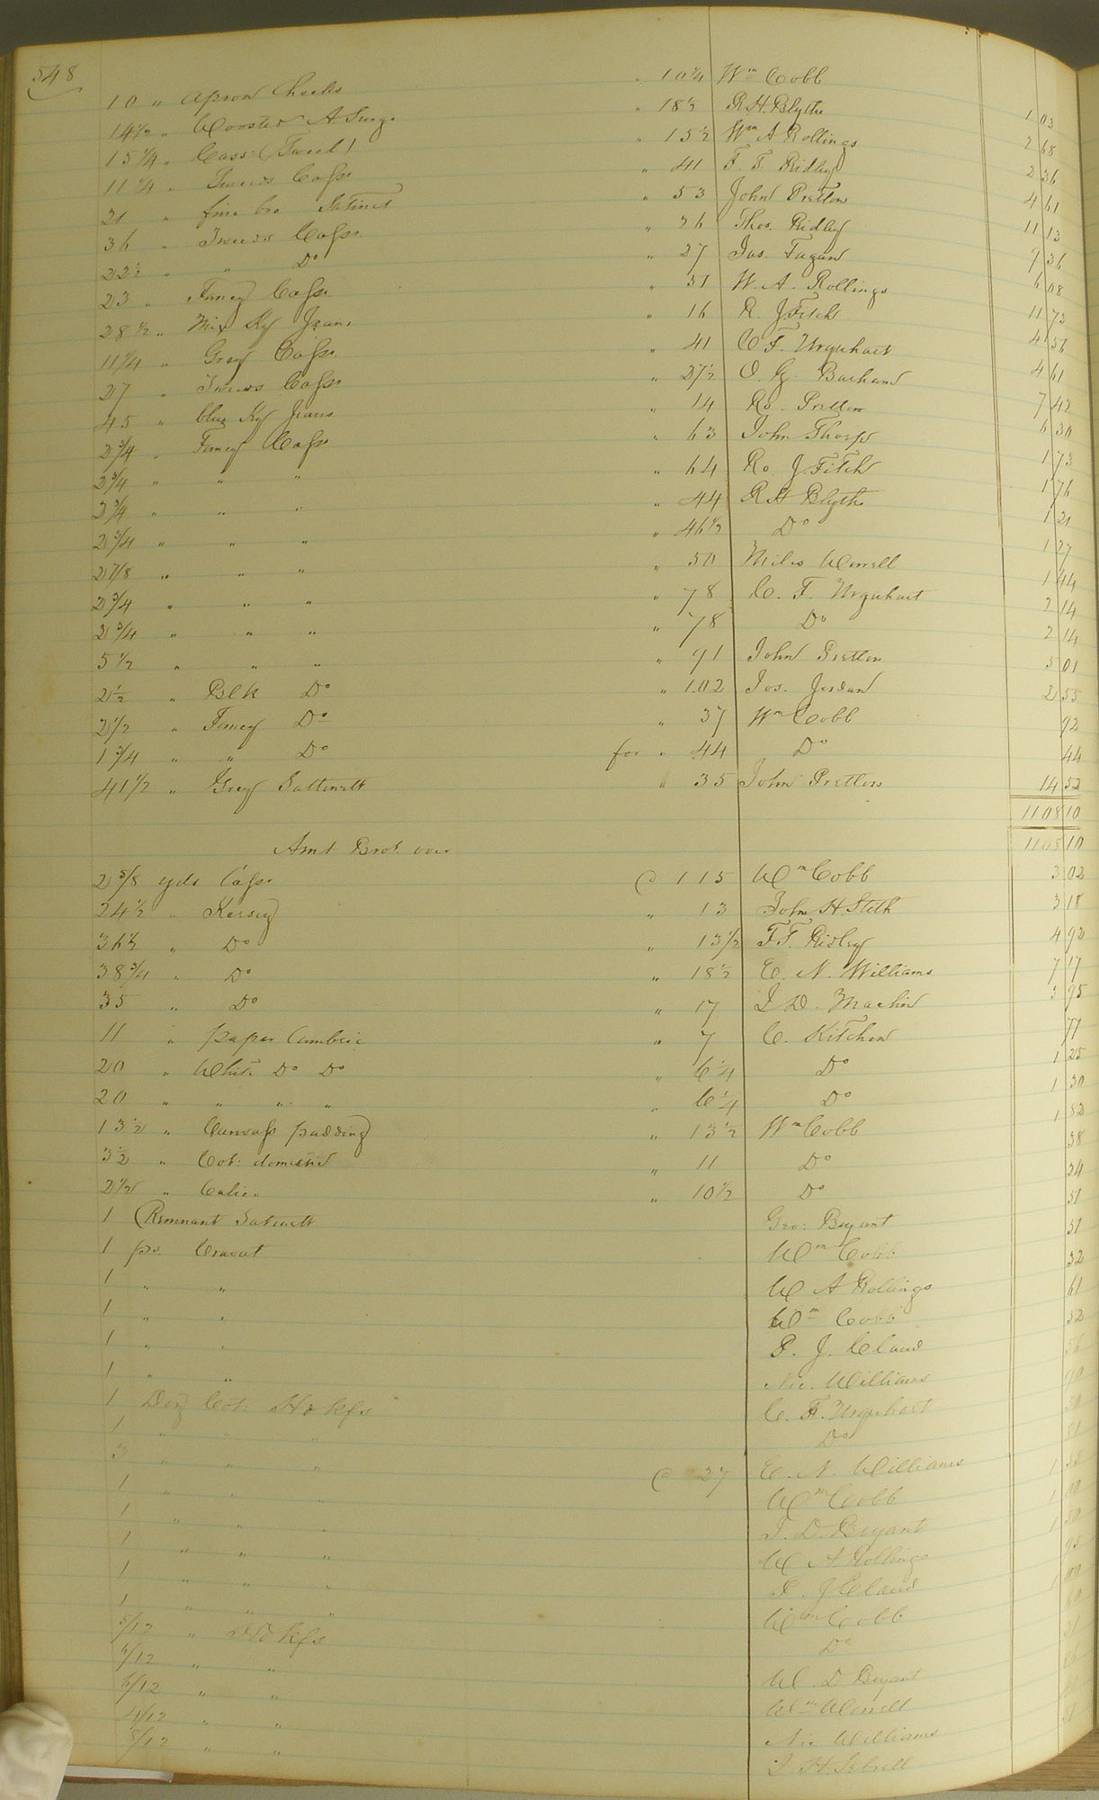 548
10 " Apron Checks " 10¼ Wm Cobb 1 03
14½ " Worsted A Serge " 18½ R. H. Blythe 2 68
15¼ " Cass (Tweed) " 15½ Wm A Rollings 2 36
11¼ " Tweeds Cass. " 41 F. T. Ridley 4 61
21 " fine bro Satinet " 53 John Pretlow 11 13
36 " Tweeds Cass. " 26 Thos. Ridley 9 36
22½ " " Do " 27 Jas. Fagan 6 08
23 " Fancy Cass. " 51 W. A. Rollings 11 73
28½ " Mix Ky Jeans " 16 R. J. Fitch 4 56
11¼ " Grey Cass. " 41 C F. Urquhart 4 61
27 " Tweeds Cass. " 27½ O. G. 7 42
45 " blue Ky Jeans " 14 Ro. Pretlow 6 30
2¾ " Fancy Cass. " 63 John Thorp 1 73
2¾ " " " " 64 Ro J. Fitch 1 76
2¾ " " " " 44 R H Blythe 1 21
2¾ " " " " 46½ Do 1 27
2⅞ " " " " 50 Miles Worrell 1 44
2¾ " " " " 78 C. F. Urquhart 2 14
2¾ " " " " 78 Do 2 14
5½ " " " " 91 John Pretlow 5 01
2½ " Blk Do " 1.02 Jos. Jordan 2 55
2½ " Fancy Do " 37 Wm Cobb 92
1¾ " " Do for " 44 Do 44
41½ " Grey Sattinett " 35 John Pretlow 14 52
1108 10
Amt Brot. over 1108 10
2⅝ yds Cass. @ 115 Wm Cobb 3 02
24½ " Kersey " 13 John H Stith 3 18
36½ " Do " 13½ F. T. Ridley 4 92
38¾ " Do " 18½ E. N. Williams 7 17
35 " Do " 17 J D. Machin 5 95
11 " paper Cambric " 7 C. Kitchen 77
20 " White Do Do " 6¼ Do 1 25
20 " " " " " 6¼ Do 1 30
13½ " Canvass padding " 13½ Wm Cobb 1 82
3½ " Cot: domestic " 11 Do 38
2½ " Calico " 10½ Do 24
1 Remnant Satinett Geo: Bryant 51
1 ps. Cravat Wm Cobb 51
1 " " W A Rollings 32
1 " " Wm Cobb 61
1 " " P. J. Claud 52
1 " " Nic. Williams
1 Doz Cot. Hdkfs C. F. Urquhart
1 " " " Do
3 " " " @ 27 E. N. Williams
1 " " " Wm Cobb
1 " " " J. D. Bryant
1 " " " W A Rollings
1 " " " P. J Claud
1 " " " Wm Cobb
5/12 " Hdkfs Do
6/12 " " W. D Bryant
6/12 " " Wm Worrell
4/12 " " Nic Williams
5/12 " " J. H. Sebrell